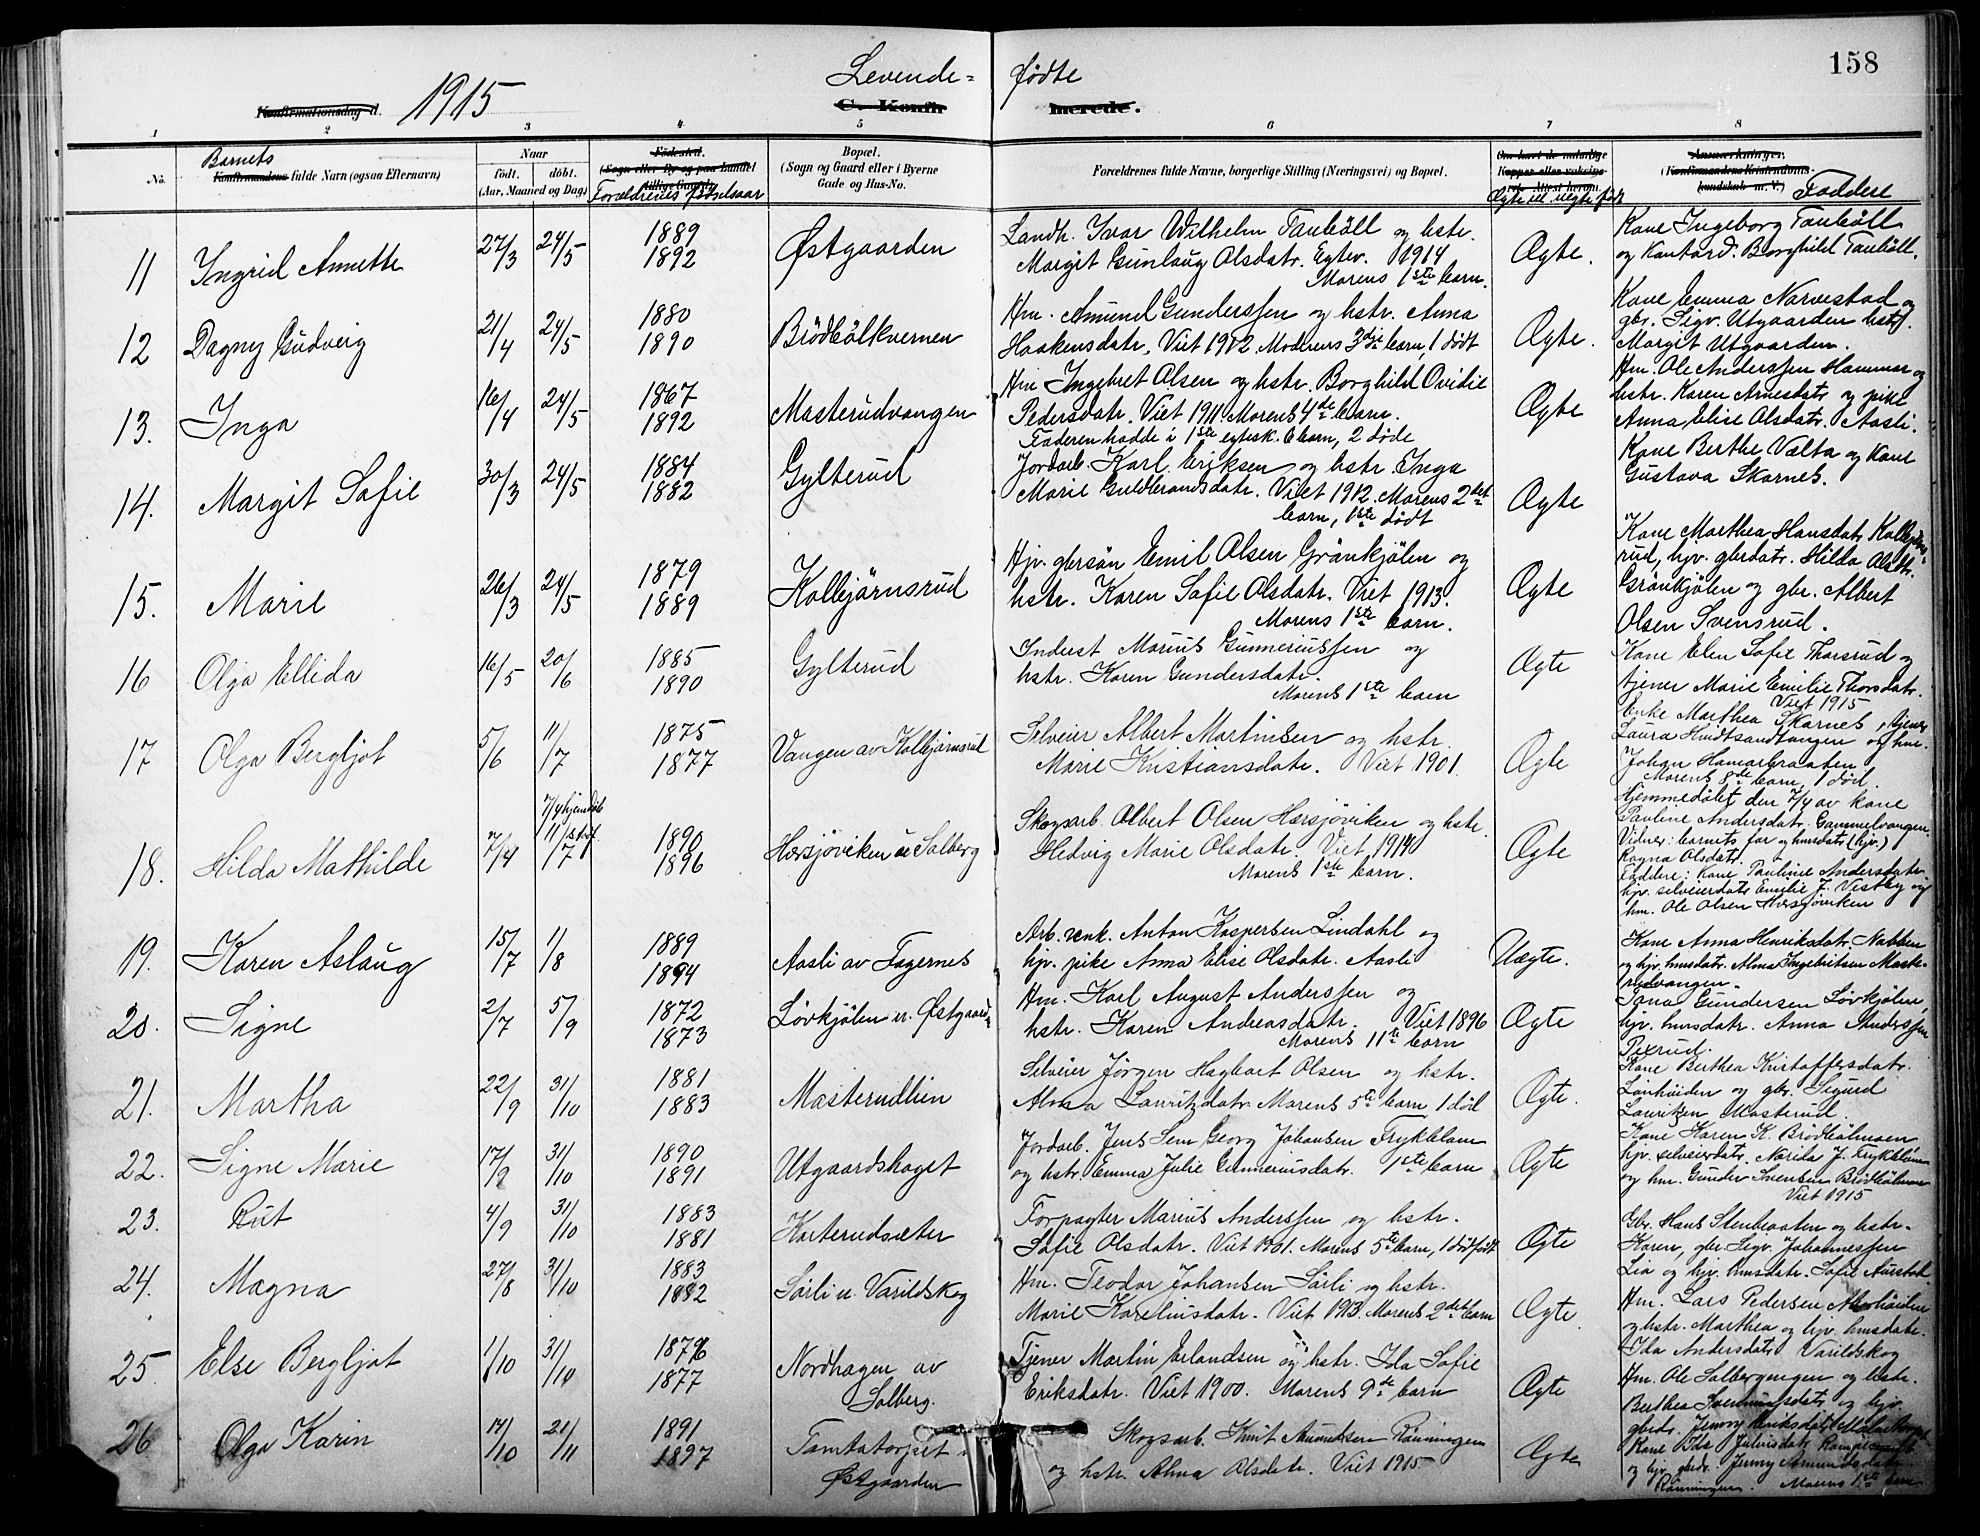 158
Levende= fødte
Konfirmationsdag d. 1915
C. Konfirmerede.
1 2 3 4 5 6 7 8
No.
Barnets
Konfirmandens fulde Navn (ogsaa Efternavn)
Naar
født. døbt.
(Aar, Maaned og Dag)
Fødested.
(Sogn eller By og paa Landet
tillige Gaard)
Forældrenes fødselsaar
Bopæl.
(Sogn og Gaard eller i Byerne
Gade og Hus-No.
Forældrenes fulde Navne, borgerlige Stilling (Næringsvei) og Bopæl.
Om havt de naturlige
Kopper eller vaksineret
Ægte ell. uægte født
Anmærkninger.
(Konfirmandens Kristendoms-
kundskab m. V.)
Faddere
11 Ingrid Annette 27/3 24/5 1889 1892 Østgaarden
Landh. Ivar Wilhelm Taubøll og hstr.
Margit Gunlaug Olsdatr. Egtev. 1914
Morens 1ste barn.
Ægte.
Kone Ingeborg Taubøll
og Kontord. Borghild Taubøll.
12 Dagny Gudveig 21/4 24/5 1880 1890 Brödbölkvernen
Hm. Amund Gunderssen og hstr. Anna
Haakensdatr. Viet 1912. Moderens 3die barn, 1 dødt
Ægte.
Kone Emma Narvestad og
gbr. Sigv. Utgaarden hstr.
Margit Utgaarden.
13. Inga 16/4 24/5 1867 1892 Masterudvangen
Hm Ingebret Olsen og hstr. Borghild Ovidie
Pedersdatr. Viet 1911. Morens 4de barn.
Faderen hadde i 1ste egtesk. 6 barn, 2 døde
Ægte
Hm. Ole Anderssen Hammar og
hstr. Karen Arnesdatr og pike
Anna Elise Olsdatr. Aasli.
14. Margit Sofie 30/3 24/5 1884 1882 Gylterud
Jordarb. Karl Eriksen og hstr. Inga
Marie Guldbrandsdatr. Viet 1912. Morens 2det
barn, 1ste dødt
Ægte
Kone Berthe Vælta og Kone
Gustava Skarnes.
15. Marie 26/3 24/5 1879 1889 Kollejörnsrud
Hjv. gbrsøn Emil Olsen Grönkjölen og
hstr. Karen Sofie Olsdatr. Viet 1913.
Morens 1ste barn.
Ægte
Kone Marthea Hansdatr. Kollejörns-
rud, hjv. gbrdatr. Hilda Olsdtr.
Grönkjölen og gbr. Albert
Olsen Svensrud.
16 Olga Ellida 16/5 20/6 1885 1890 Gylterud
Inderst Marius Gunneriussen og
hstr. Karen Gundersdatr.
Morens 1ste barn
Ægte
Kone Elen Sofie Thorsrud og
tjener Marie Emilie Thorsdatr.
Viet 1915
17 Olga Bergljot 5/6 11/7 1875 1877 Vangen av Kollejörnsrud
Selveier Albert Martinsen og hstr.
Marie Kristiansdatr. Viet 1901.
Ægte
Enke Marthea Skarnes, tjener
Laura og hm.
Johan Hamarbraaten
Morens 8de barn, 1 död.
18. Hilda Mathilde 7/4 7/4 hjemdøb. 11/7 1890 1896 Hærsjøviken u Solberg
Skogsarb. Albert Olsen Hærsjøviken og hstr.
Hedvig Marie Olsdatr Viet 1914
Morens 1ste barn.
Ægte
Hjemmedøbt den 7/4 av kone
Pauline Andersdatr. Gammelvangen.
Vidner: barnets far og hmsdatr (hjv.)
Ragna Olsdatr.
Faddere: kone Pauline Andersdatr.
hjv. selveierdatr Emilie J. Vestby og
hm. Ole Olsen Hærsjøviken
19. Karen Aslaug 15/7 1/8 1889 1894 Aasli av Fagernes
Arb. enk. Anton Kaspersen Lindahl og
hjv. pike Anna Elise Olsdatr. Aasli
Uægte.
Kone Anna Henriksdatr. Nabben
og hjv. hmsdatr. Alma Ingebritsen Maste-
rudvangen.
20. Signe 2/7 5/9 1872 1873 Lövkjölen u. Østgaarden
Hm. Karl August Anderssen og
hstr. Karen Andreasdatr. Viet 1896
Morens 11te barn
Ægte
Gundersen Lövkjölen,
hjv. hmsdatr. Anna Anderssen
Pixrud.
21. Martha 22/9 31/10 1881 1883 Masterudlien
Selveier Jørgen Hagbart Olsen og hstr.
Alma Lauritzdatr. Morens 5te barn, 1 död
Ægte.
Kone Berthea Kristoffersdatr.
og gbr. Sigurd
Lauritzen Masterud.
22. Signe Marie 17/9 31/10 1890 1891 Utgaardshaget
Jordarb. Jens Sem Georg Johansen Frykblom
og hstr. Emma Julie Gunneriusdatr. 1ste barn
Ægte
Kone Karen K. Brödbölmoen
hjv. selveierdatr. J. Frykblom
og hm. Gunder Svensen Brödbölmoen
Viet 1915
23. Rut 4/9 31/10 1883 1881 Karterudsæter
Forpagter Marius Anderssen og hstr.
Sofie Olsdatr. Viet 1901. Morens 5te barn, 1 dödfödt
Ægte
Gbr. Hans Stenbraaten og hstr.
Karen, gbr. Sigv. Johannessen
Lia og hjv. hmsdatr. Sofie Aurstad.
24. Magna 27/8 31/10 1883 1882 Sörli u. Varildskog
Hm. Teodor Johansen Sörli og hstr.
Marie Kareliusdatr. Viet 1913. Morens 2det barn
Ægte.
Hm. Lars Pedersen
og hstr. Marthea og hjv. hmsdatr.
Ida Andersdatr. Varildskog
25. Else Bergljot 1/10 31/10 1876 1877 Nordhagen av
Solberg.
Tjener Martin Erlandsen og hstr. Ida Sofie
Eriksdatr. Viet 1900. Morens 9de barn
Ægte
Hm. Ole Solbergengen og hstr.
Berthea og hjv.
gbrdr. Jenny
26 Olga Karin 14/10 21/11 1891 1897 Tomtatorpet i
Østgaarden
Skogsarb. Knut Amundsen Rönningen
og hstr. Alma Olsdatr. Viet 1915
Ægte
Kone Ida Juliusdatr.
og hjv. gbrdr. Jenny Amundsdatr.
Rönningen. Morens 1ste barn